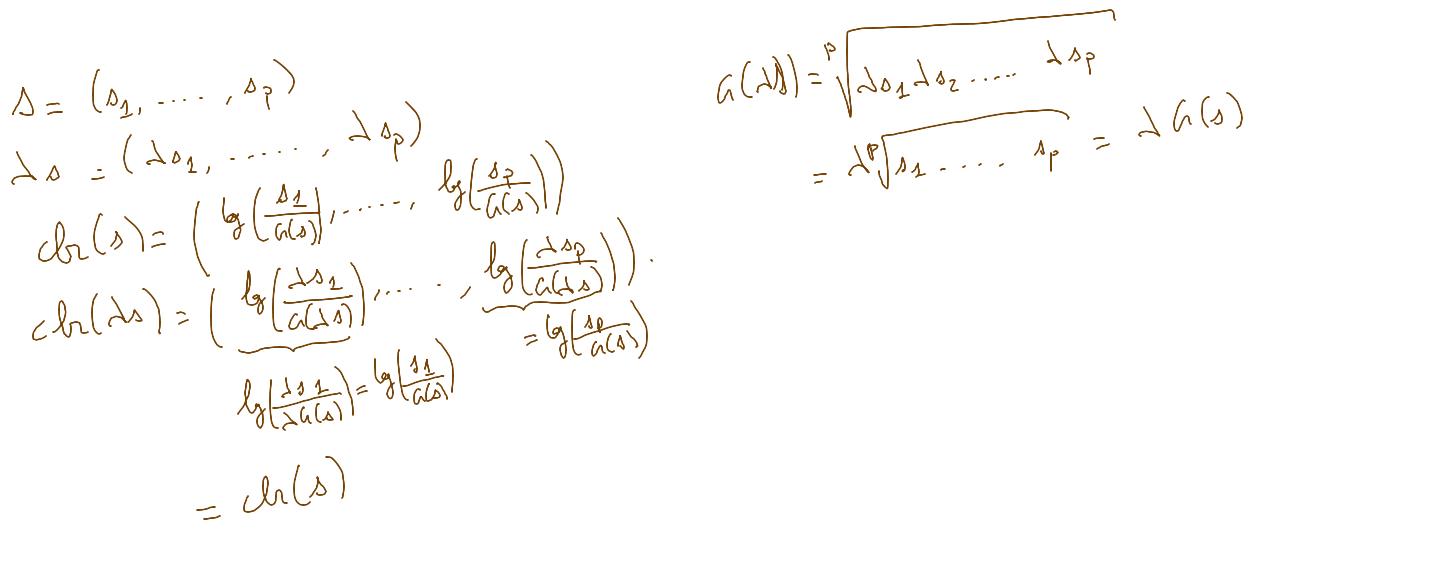 s = (s₁, ....., s_p)
λs = (λs₁, ......, λs_p)
clr(s) = (lg(s₁/G(s)), ......, lg(s_p/G(s)))
clr(λs) = (lg(λs₁/G(λs)), ....., lg(λs_p/G(λs))).
= lg(s_p/G(s))
lg(λs₁/λG(s)) = lg(s₁/G(s))
= clr(s)
G(λs) = ᵖ√(λs₁ λs₂ ..... λs_p)
= λ ᵖ√(s₁ ..... s_p) = λ G(s)